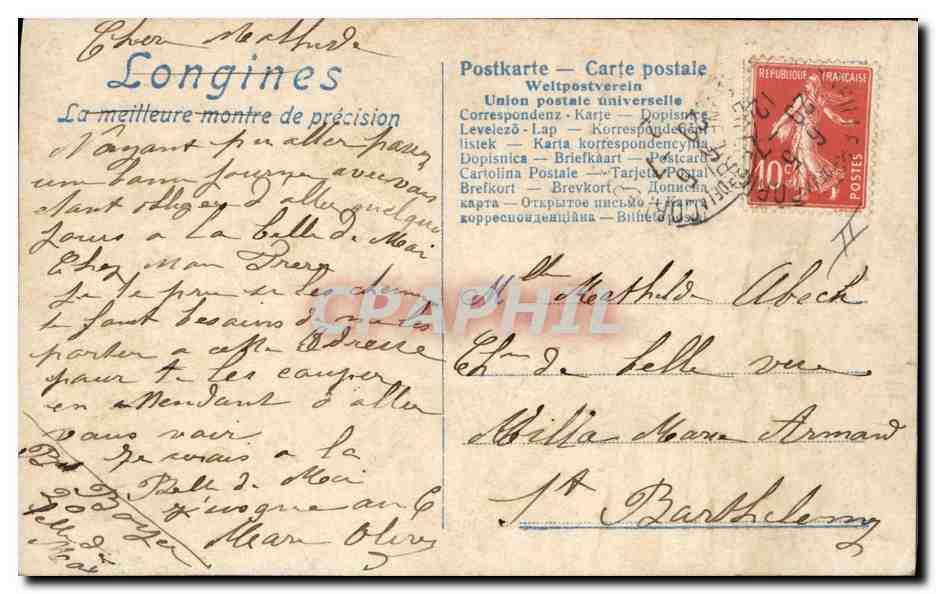 Cher Mathilde
Longines
La meilleure montre de précision
N'ayant pu aller passer
une bonne journe avec vous
etant obliger d'aller quelque
jours a la belle de Mai
Chez Mon Frere
Je te prie si les
te faut besoins de me les
porter a cette Adresse
pour te les couper
en attendant d'aller
vous voir
Je serais a la
Belle de Mai
jusque au 6
Marie Olive
Bd Boyer
20
belle de
Mai
Postkarte — Carte postale
Weltpostverein
Union postale universelle
Correspondenz-Karje — Dopisnice
Levelező-Lap — Korrespondenten
listek — Karta korrespondencyjna
Dopisnica — Briefkaart — Postcard
Cartolina Postale — Tarjeta Postal
Brefkort — Brevkort — Дописна
карта — Открытое письмо — Карта
корреспонденцiйна — Bilhete postal
REPUBLIQUE FRANÇAISE
10c
POSTES
II
Mlle Mathilde Abech
Chin de belle vue
Villa Marie Armand
St Barthelemy
CPAPHIL